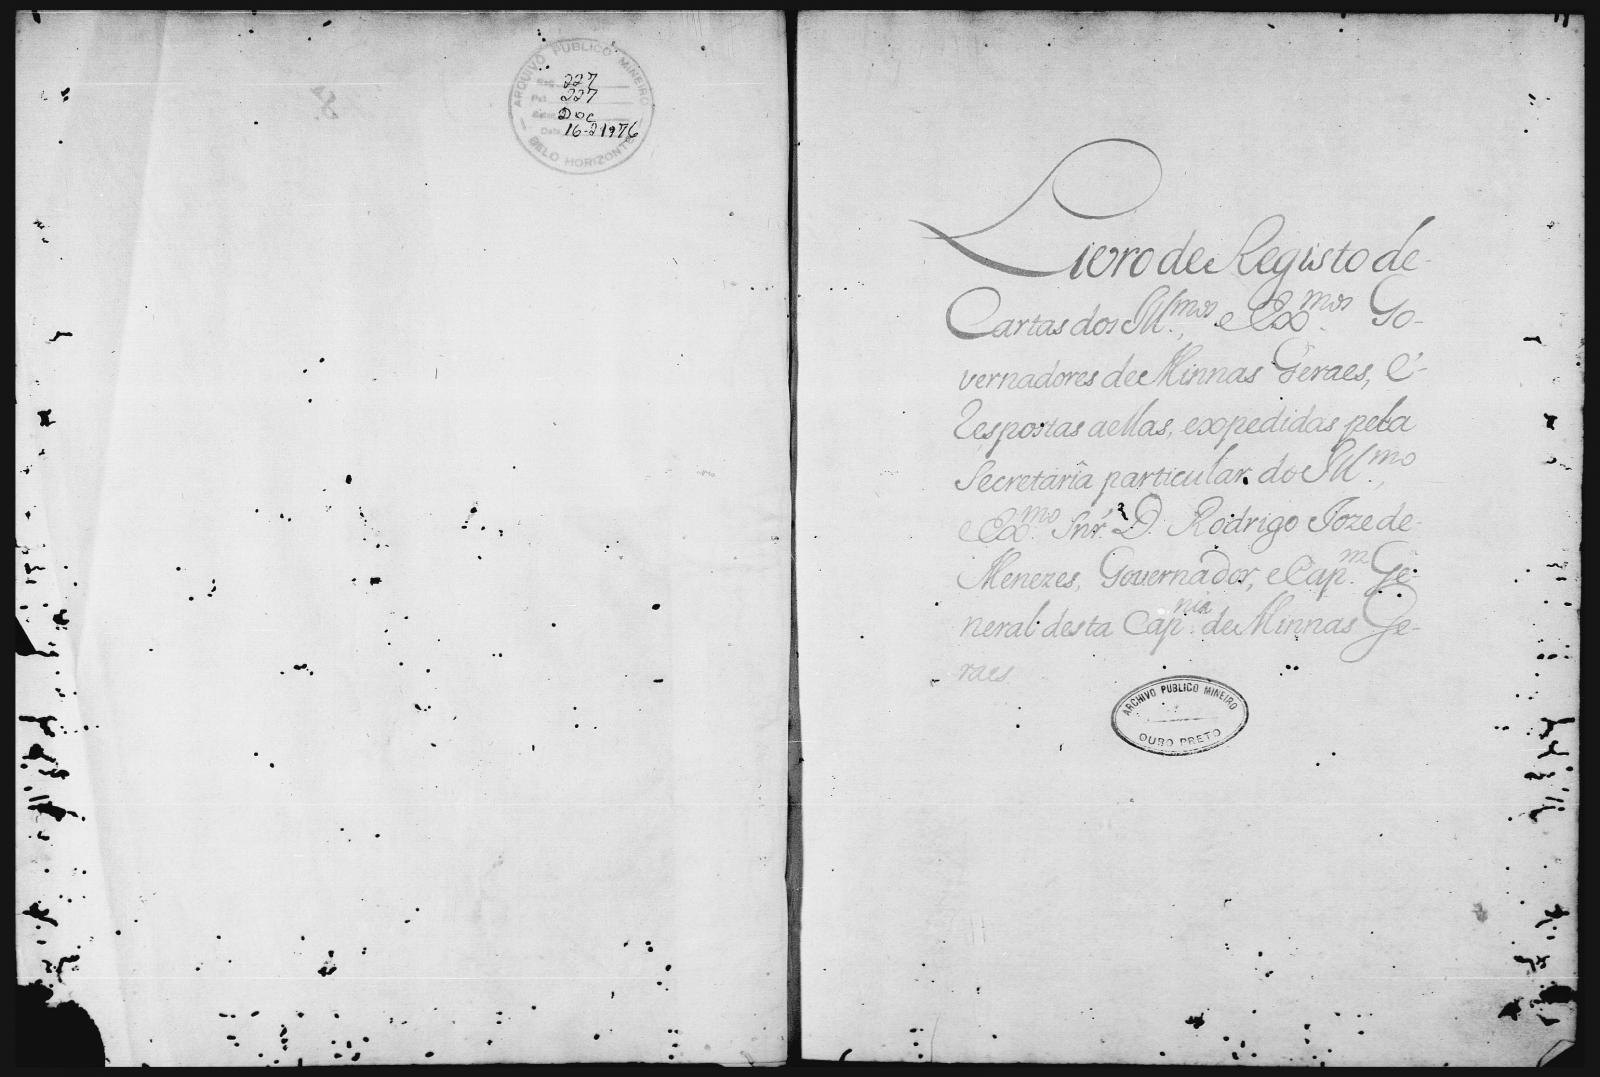 ARQUIVO PUBLICO MINEIRO
227
227
Doc
Data 16-2-1976
BELO HORIZONTE
Livro de Registo de
Cartas dos Ill.mos, e Ex.mos Go-
vernadores de Minnas Geraes, e
Respostas aellas, expedidas pela
Secretaria particular do Ill.mo,
e Ex.mo Snr. D. Rodrigo Joze de
Menezes, Governador, e Cap.m Ge-
neral desta Cap.nia de Minnas Ge-
raes.
ARCHIVO PUBLICO MINEIRO
OURO PRETO